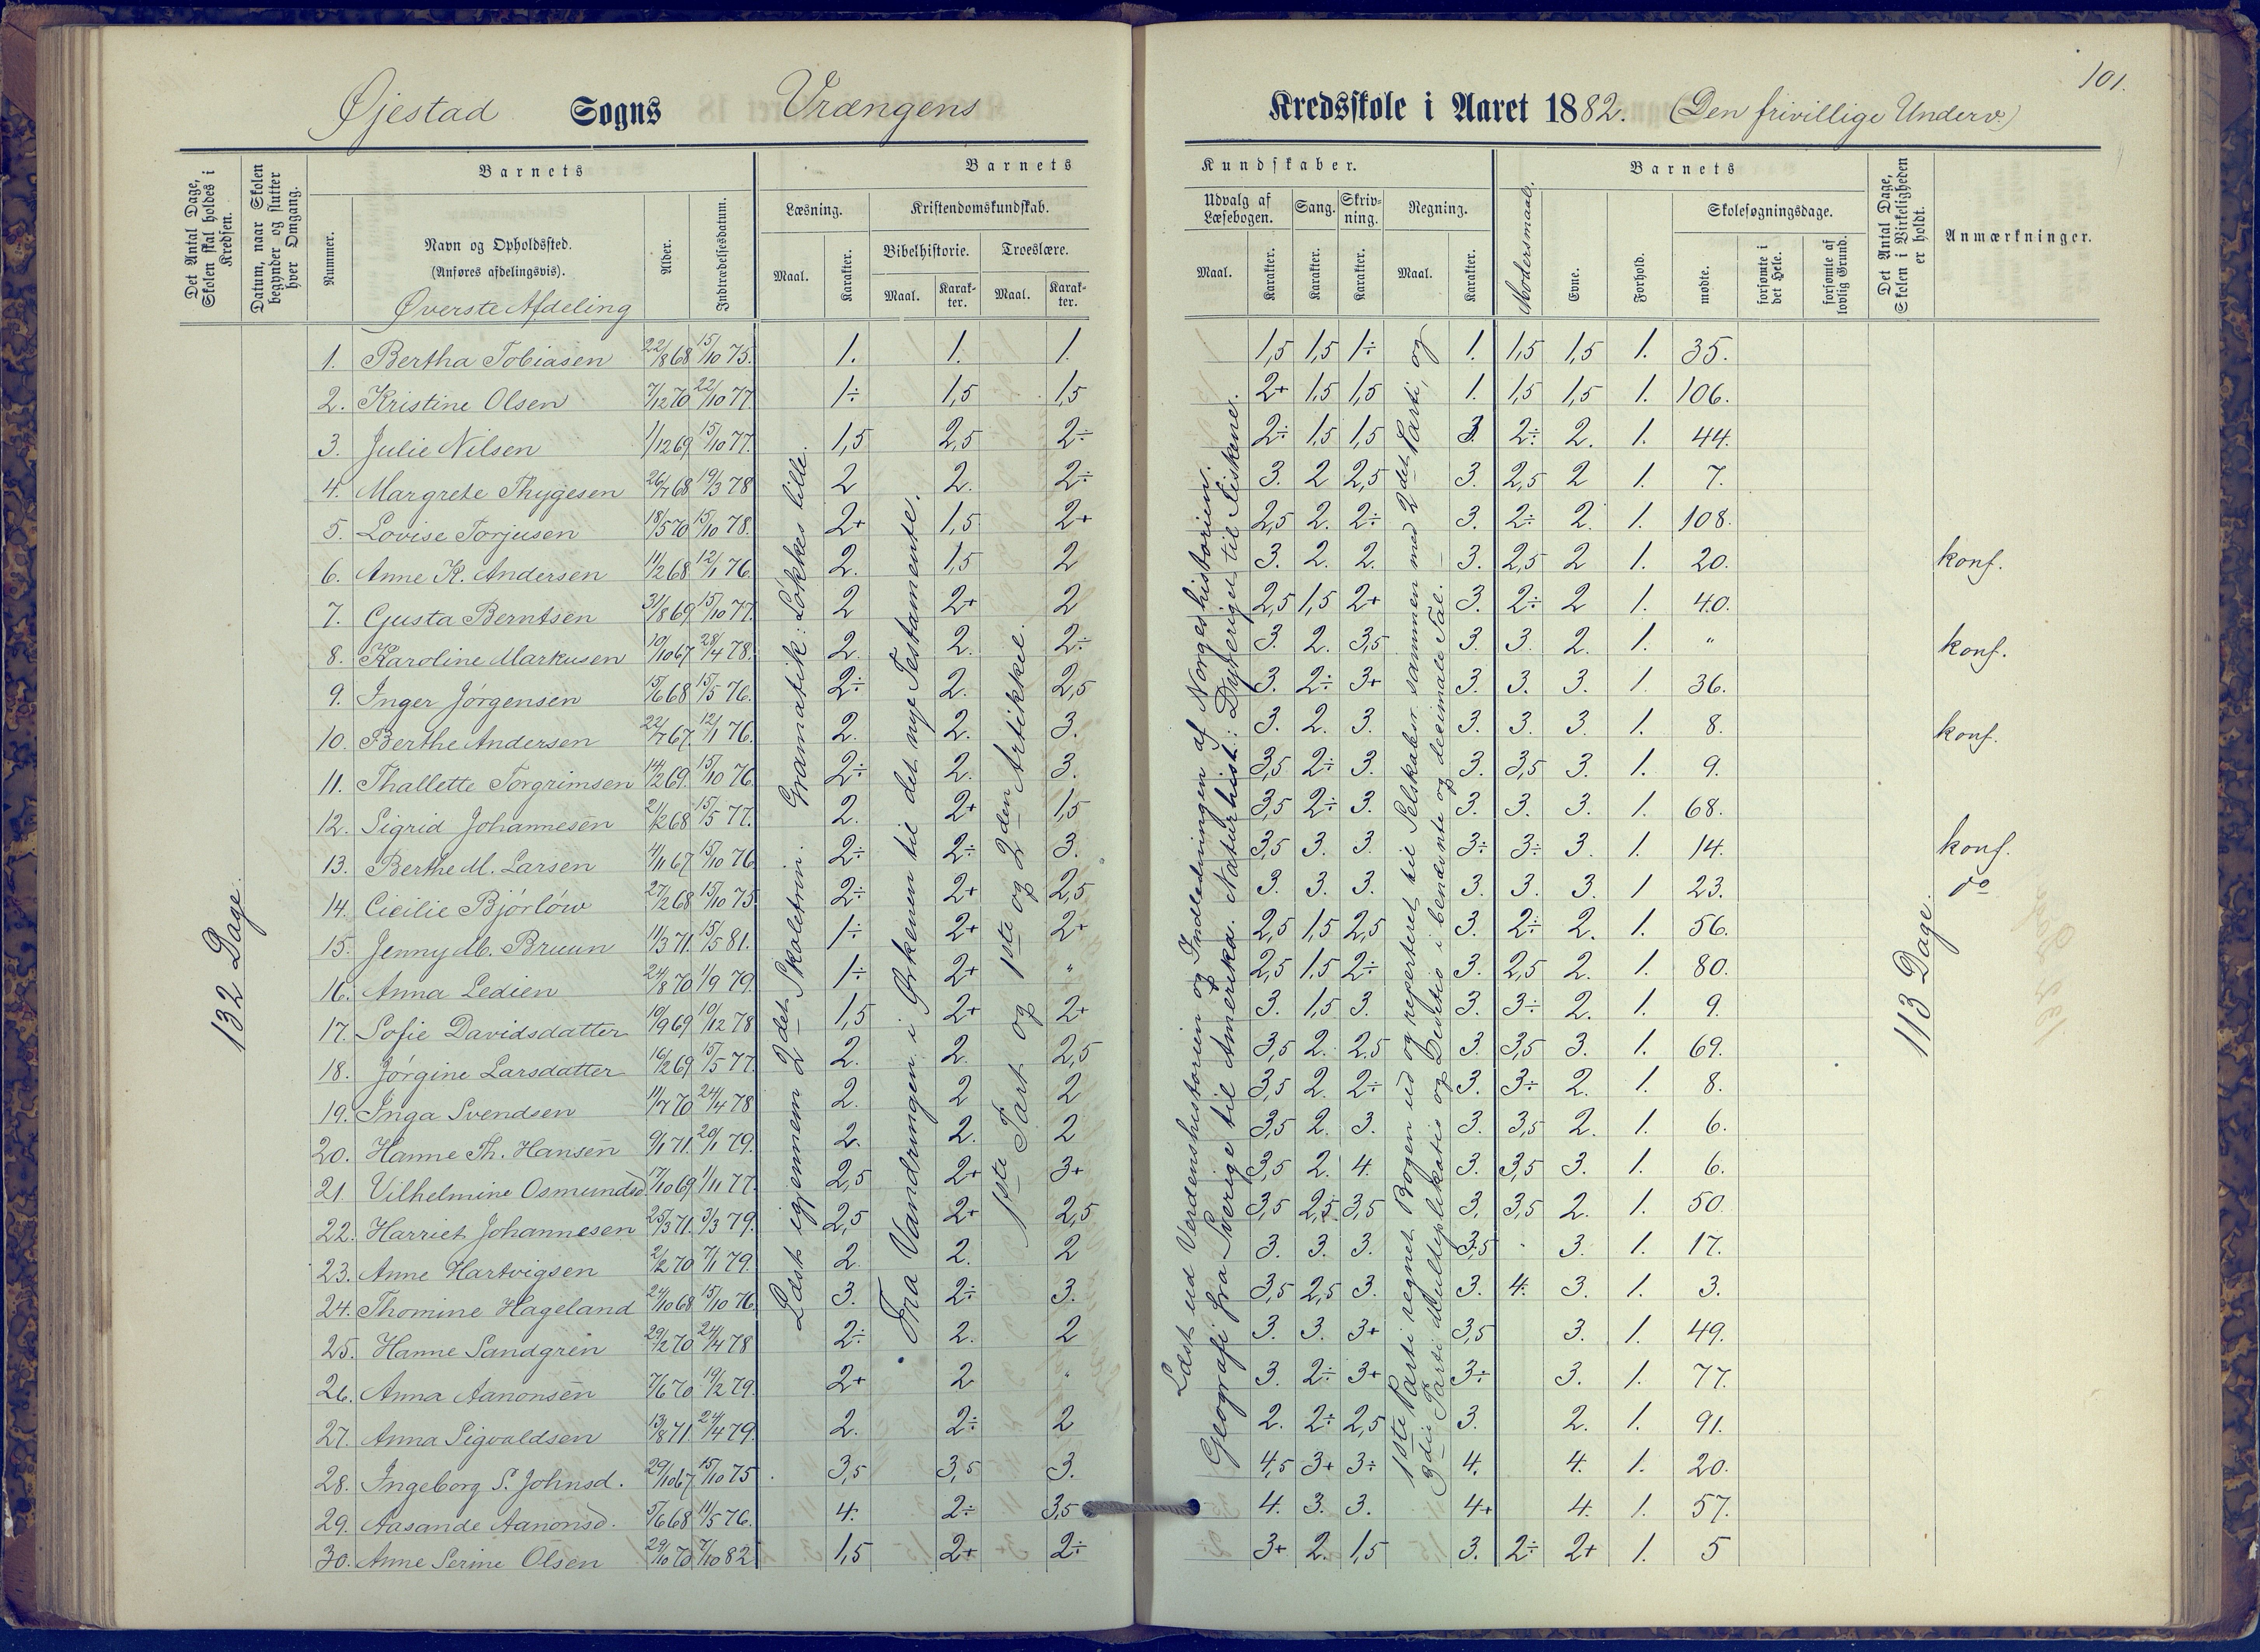 101.
Øjestad Sogns Vrængens Kredsskole i Aaret 1882. (Den frivillige Underv.)
Det Antal Dage, Skolen skal holdes i Kredsen.
Datum, naar Skolen begynder og slutter hver Omgang.
Nummer.
Barnets
Navn og Opholdssted.
(Anføres afdelingsvis).
Øverste Afdeling
Alder.
Indtrædelsesdatum.
Barnets Kundskaber.
Læsning. Maal. Karakter.
Kristendomskundskab.
Bibelhistorie. Maal. Karakter.
Troeslære. Maal. Karakter.
Udvalg af Læsebogen. Maal. Karakter.
Sang. Karakter.
Skrivning. Karakter.
Regning. Maal. Karakter.
Modersmaal.
Barnets
Evne. Forhold.
Skolesøgningsdage.
mødte. forsømte i det Hele. forsømte af lovlig Grund.
Det Antal Dage, Skolen i Virkeligheden er holdt.
Anmærkninger.
132 Dage.
Læst igjennem 2det Skoletrin. Grammatik: Løkkes lille.
Fra Vandringen i Ørkenen til det nye Testamente.
1ste Part og 1ste og 2den Artikkel.
Læst ud Verdenshistorien og Indledningen af Norgeshistorien.
Geografi fra Sverige til Amerika. Naturhist.: Dyreriget til Fiskene.
1ste Parti regnet Bogen ud og repeteret til Selskabsr. sammen med 2det Parti, og
3die Parti Multiplikatio og Deeltio i benævnte og decimale Tal.
113 Dage.
1. Bertha Tobiasen 22/8 68 15/10 75. 1. 1. 1. 1,5 1,5 1÷ 1. 1,5 1,5 1. 35.
2. Kristine Olsen 7/12 70 22/10 77. 1÷ 1,5 1,5 2+ 1,5 1,5 1. 1,5 1,5 1. 106.
3. Julie Nilsen 1/12 69 15/10 77. 1,5 2,5 2÷ 2÷ 1,5 1,5 3. 2÷ 2. 1. 44.
4. Margrete Thygesen 26/7 68 19/3 78 2 2. 2÷ 3. 2 2,5 3. 2,5 2 1. 7.
5. Lovise Torjusen 18/5 70 15/10 78. 2+ 1,5 2+ 2,5 2. 2÷ 3. 2÷ 2. 1. 108.
6. Anne K. Andersen 11/2 68 12/1 76. 2. 1,5 2 3. 2. 2. 3. 2,5 2 1. 20. konf.
7. Gusta Berntsen 31/8 69 15/10 77. 2 2+ 2 2,5 1,5 2+ 3. 2÷ 2 1. 40.
8. Karoline Markusen 10/10 67 28/4 78. 2. 2. 2÷ 3. 2. 3,5 3. 3. 2. 1. " konf.
9. Inger Jørgensen 15/6 68 15/5 76. 2÷ 2. 2,5 3. 2÷ 3+ 3. 3. 3. 1. 36.
10. Berthe Andersen 22/7 67. 12/1 76. 2. 2. 3. 3. 2. 3. 3. 3. 3. 1. 8. konf.
11. Thallette Torgrimsen 14/2 69. 15/10 76. 2÷ 2. 3. 3,5 2÷ 3. 3. 3,5 3. 1. 9.
12. Sigrid Johannesen 21/2 68 15/5 77. 2. 2+ 1,5 3,5 2÷ 3. 3. 3. 3. 1. 68.
13. Berthe M. Larsen 4/11 67 15/10 76 2÷ 2÷ 3. 3,5 3. 3. 3÷ 3÷ 3. 1. 14. konf.
14. Cicilie Bjørløw 27/2 68 15/10 75 2÷ 2+ 2,5 3. 3. 3. 3. 3. 3. 1 23. do
15. Jenny M. Bruun 11/3 71. 15/5 81. 1÷ 2+ 2+ 2,5 1,5 2,5 3. 2÷ 2. 1. 56.
16. Anna Ledien 24/8 70 1/9 79. 1÷ 2+ " 2,5 1,5 2÷ 3. 2,5 2. 1. 80.
17. Sofie Davidsdatter 19/9 69 19/12 78 1,5 2+ 2+ 3. 1,5 3. 3. 3÷ 2. 1. 9.
18. Jørgine Larsdatter 16/2 69 15/5 77. 2. 2. 2,5 3,5 2. 2,5 3. 3,5 3. 1. 69.
19. Inga Svendsen 11/7 70 24/4 78 2. 2 2 3,5 2. 2÷ 3. 3÷ 2. 1. 8.
20. Hanne Th. Hansen 9/1 71. 20/1 79. 2. 2. 2 3,5 2. 3. 3. 3,5 2. 1. 6.
21. Vilhelmine Osmundsd. 17/10 69 1/11 77. 2,5 2+ 3+ 3,5 2. 4. 3. 3,5 3. 1. 6.
22. Harriet Johannesen 25/3 71. 3/3 79. 2,5 2+ 2,5 3,5 2,5 3,5 3. 3,5 2. 1. 50.
23. Anne Hartvigsen 2/2 70 7/1 79. 2. 2. 2 3. 3. 3. 3,5 3. 1. 17.
24. Thomine Hageland 24/10 68 15/10 76. 3. 2÷ 3. 3,5 2,5 3. 3. 4. 3. 1. 3.
25. Hanne Sandgren 29/2 70 24/4 78 2÷ 2. 2 3. 3. 3+ 3,5 3. 1. 49.
26. Anna Aanonsen 7/6 70. 19/2 79. 2+ 2 " 3. 2÷ 3+ 3÷ 3. 1. 77.
27. Anna Sigvaldsen 13/8 71. 24/4 79. 2. 2÷ 2 2. 2÷ 2,5 3. 2. 1. 91.
28. Ingeborg S. Johnsd. 29/10 67 15/10 75. 3,5 3,5 3. 4,5 3+ 3÷ 4. 4. 1. 20.
29. Aasande Aanonsd. 5/6 68 11/5 76. 4. 2÷ 3,5 4. 3. 3. 4+ 4. 1. 57.
30. Anne Serine Olsen 29/10 70 7/10 82 1,5 2+ 2÷ 3+ 2. 1,5 3. 2÷ 2+ 1. 5